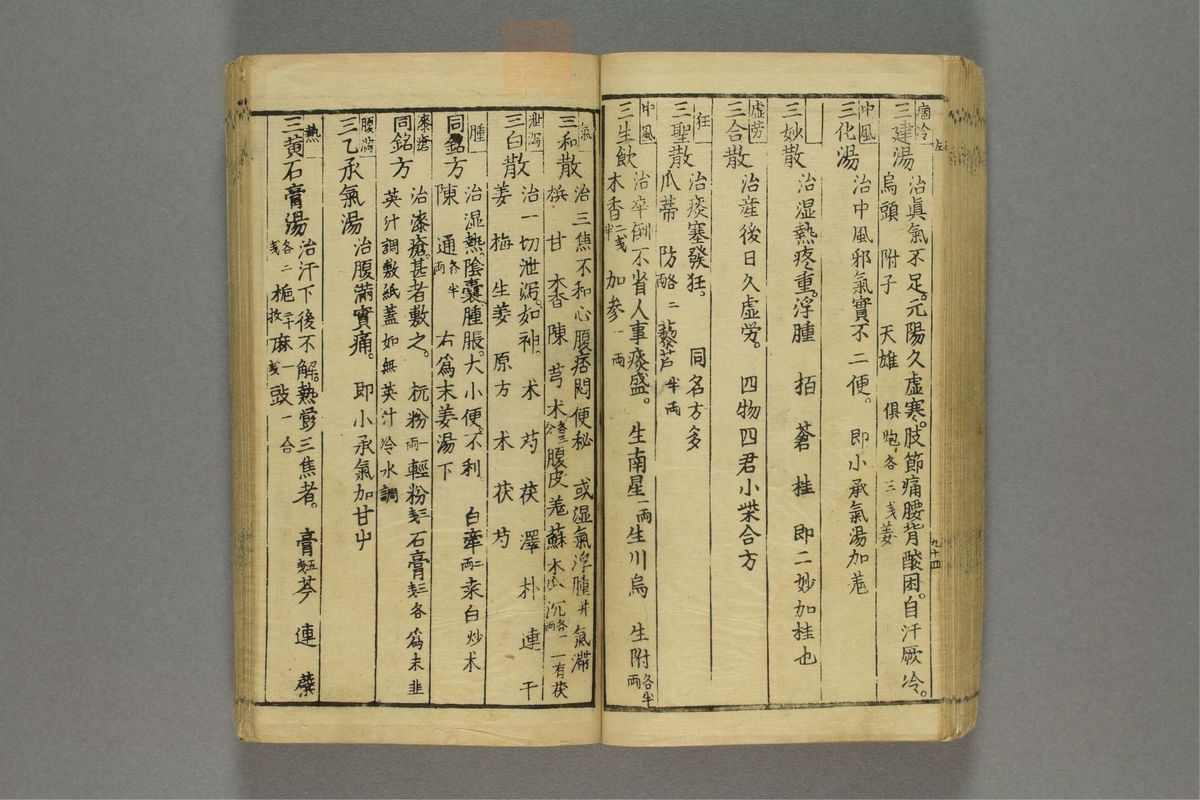 痼冷
三建湯
治眞氣不足。元陽久虛寒。肢節痛腰背酸困。自汗厥冷。
烏頭 附子 天雄 俱炮各三戔姜
九十四
中風
三化湯
治中風邪氣實不二便。 即小承氣湯加羌
三妙散
治湿熱疼重。浮腫 栢 蒼 桂 即二妙加桂也
虛労
三合散
治産後日久虛労。 四物四君小柴合方
狂
三聖散
治痰塞發狂。 同名方多
瓜蒂 防各二兩 藜芦半両
中風
三生飲
治卒倒不省人事痰盛。 生南星一両 生川烏 生附各半両
木香二戔半 加参一両
氣
三和散
治三焦不和心腹痞悶便秘 或湿氣浮腫并氣滞
梹 甘 木香 陳 芎 术各三分 腹皮 羗 蘇 木瓜 沉各一両 一有茯
泄瀉
三白散
治一切泄瀉。如神。 术 芍 茯 澤 朴 連 干
姜 梅 生姜 原方 术 茯 芍
腫
同銘方
治湿熱。陰囊。腫脹。大小便。不利 白牽二両 桒白炒 木
陳 通各半両 右爲末姜湯下
漆瘡
同銘方
治漆瘡。甚者敷之。 杭粉一両 輕粉三戔 石膏三戔 各爲末韭
英汁調敷紙蓋如無英汁冷水調
腹満
三乙承氣湯
治腹満實痛。 即小承氣加甘屮
熱
三黄石膏湯
治汗下後不解。熱欝三焦者。 膏五戔 芩 連 蘗
各二戔 梔三十枚 麻一戔 豉一合